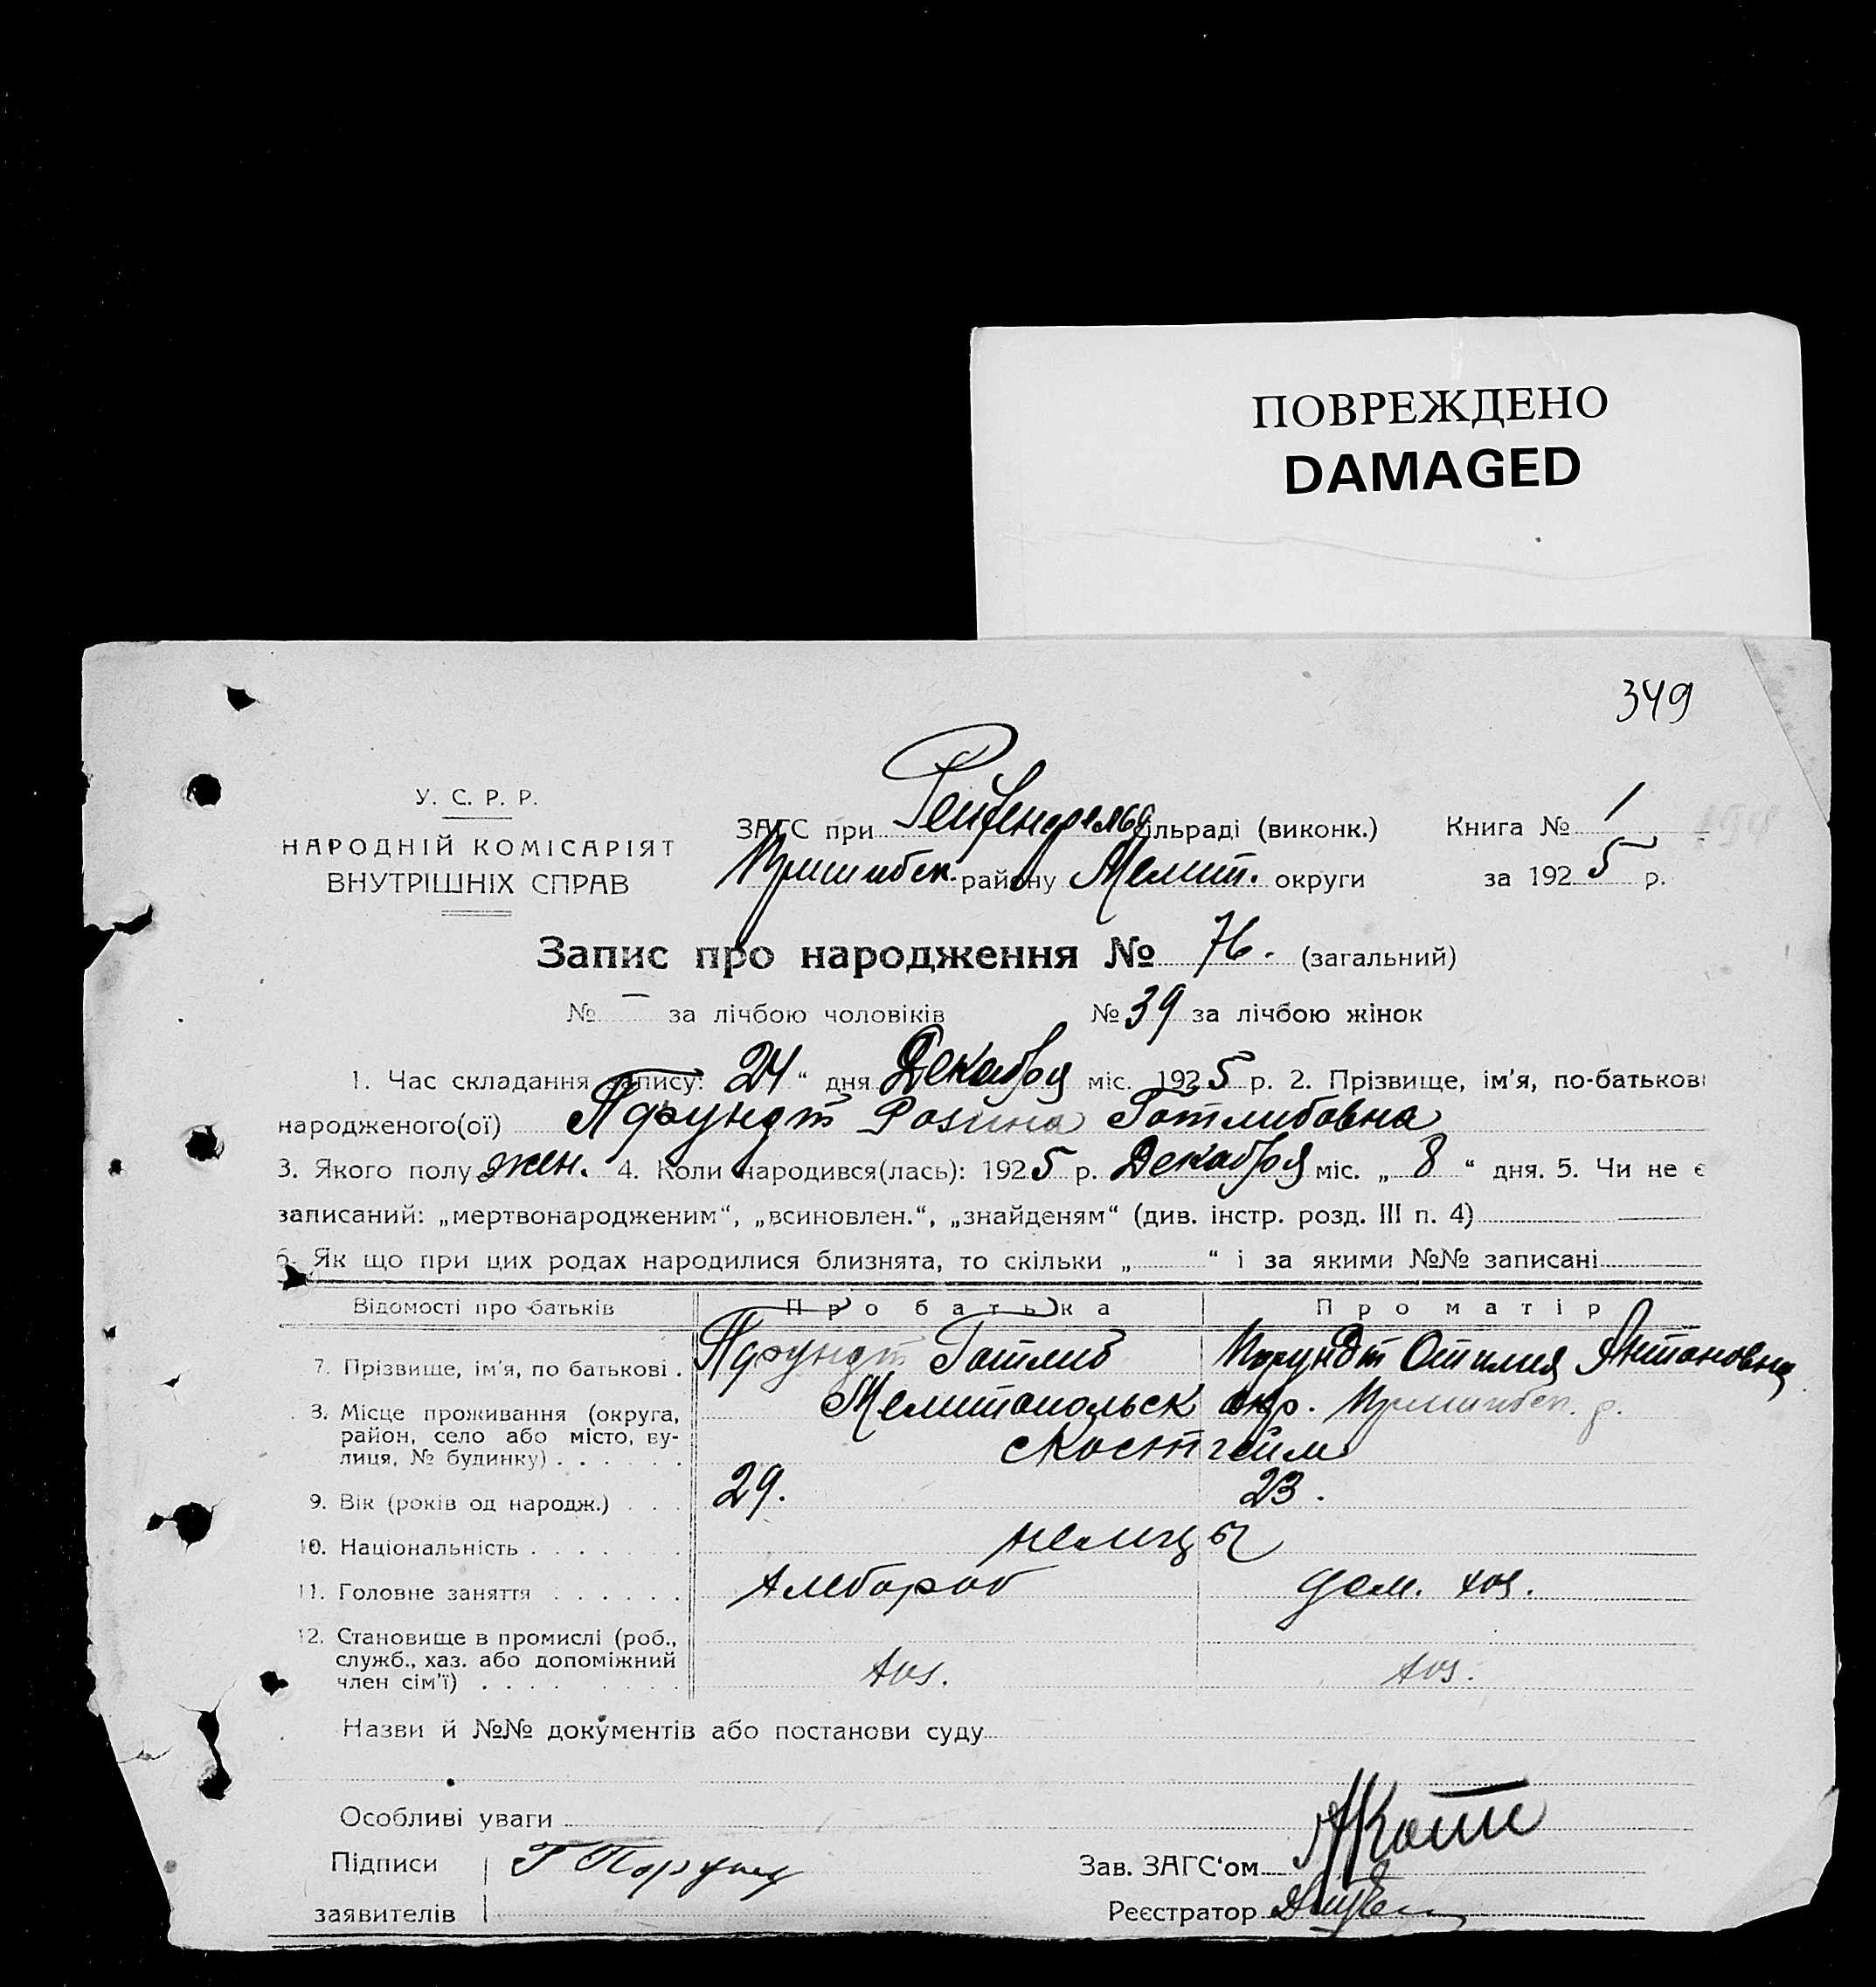 ПОВРЕЖДЕНО
DAMAGED
349
У. С. Р. Р.
НАРОДНІЙ КОМІСАРІЯТ
ВНУТРІШНІХ СПРАВ
ЗАГС при Рейфенфельд сільраді (виконк.) Книга № 1
Пришибск. району Мелит. округи за 1925 р.
Запис про народження № 76. (загальний)
№ — за лічбою чоловіків № 39 за лічбою жінок
1. Час складання запису: 24 “ дня Декабря міс. 1925 р. 2. Прізвище, ім’я, по-батькові
народженого(ої) Пфундт Розина Готлибовна
3. Якого полу жен. 4. Коли народився(лась): 1925 р. Декабря міс. „ 8 “ дня. 5. Чи не є
записаний: „мертвонародженим“, „всиновлен.“, „знайденям“ (див. інстр. розд. III п. 4)
6. Як що при цих родах народилися близнята, то скільки „ “ і за якими №№ записані
Відомості про батьків Про батька Про матір
7. Прізвище, ім’я, по батькові . Пфундт Готлиб Пфундт Отилия Антоновна
8. Місце проживання (округа, район, село або місто, вулиця, № будинку) . . . . . . Мелитопольск окр. Пришибск. р.
с Костгейм
9. Вік (років од народж.) . . . 29. 23.
10. Національність . . . . . . немцы
11. Головне заняття . . . . . . хлебороб дом. хоз.
12. Становище в промислі (роб.,
служб., хаз. або допоміжний
член сім’ї) . . . . . . . . . хоз. хоз.
Назви й №№ документів або постанови суду
Особливі уваги
Підписи Г Пфундт Зав. ЗАГС‘ом
заявителів Реєстратор